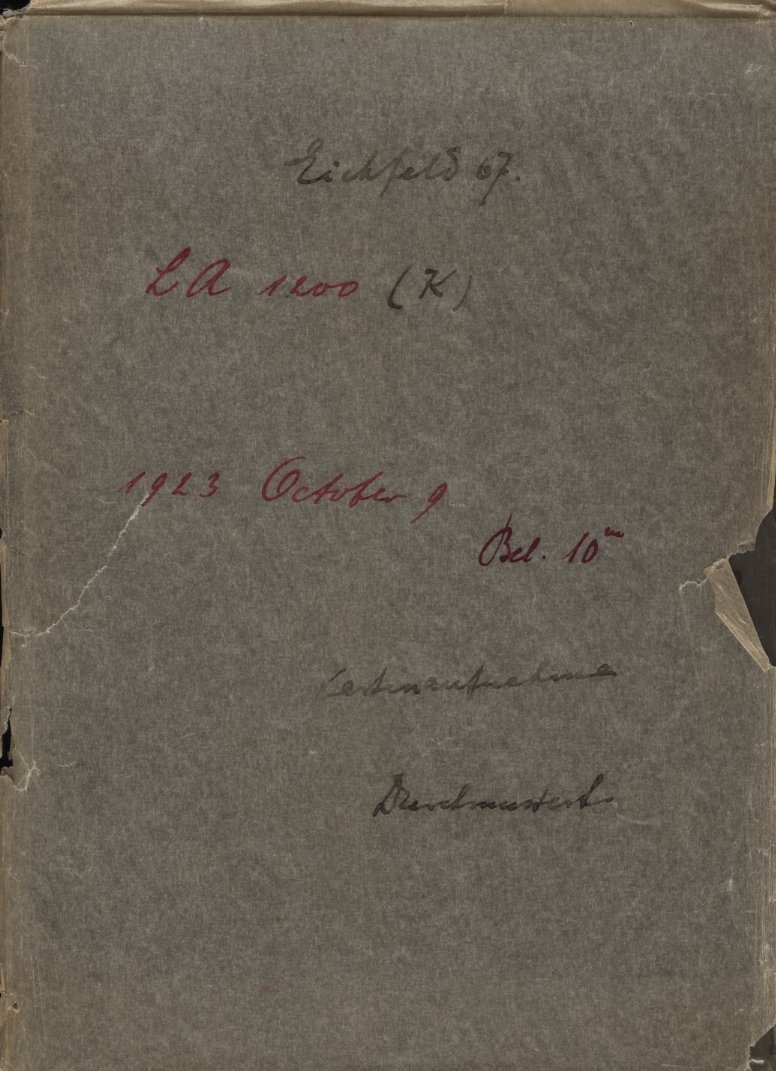 Eichfeld 67.
LA 1200 (K)
1923 October 9
Bel. 10ᵐ
Kartenaufnahme
Durchmustert.